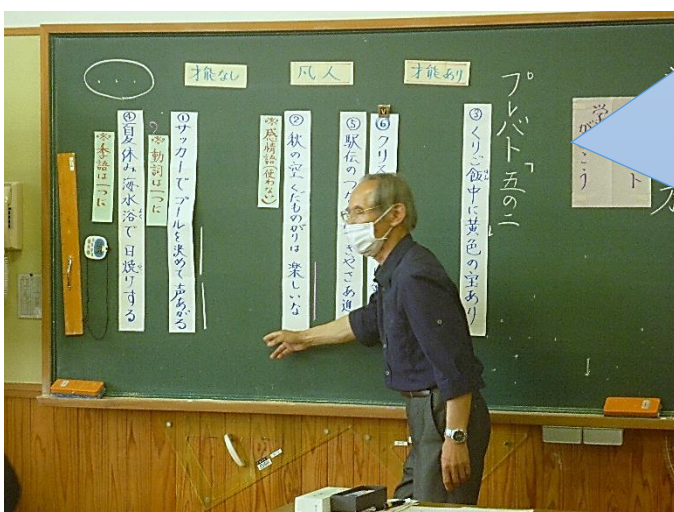 学
がっこう
ト
プレバト 五の二
才能あり
凡人
才能なし
③くりご飯中に黄色の宝あり
⑥クリス
⑤駅伝のつな
きやさあ進
②秋の空くだものがりは楽しいな
※感情語(使わない)
①サッカーでゴールを決めて声あがる
※動詞は一つに
④夏休み海水浴で日焼けする
※季語は一つに